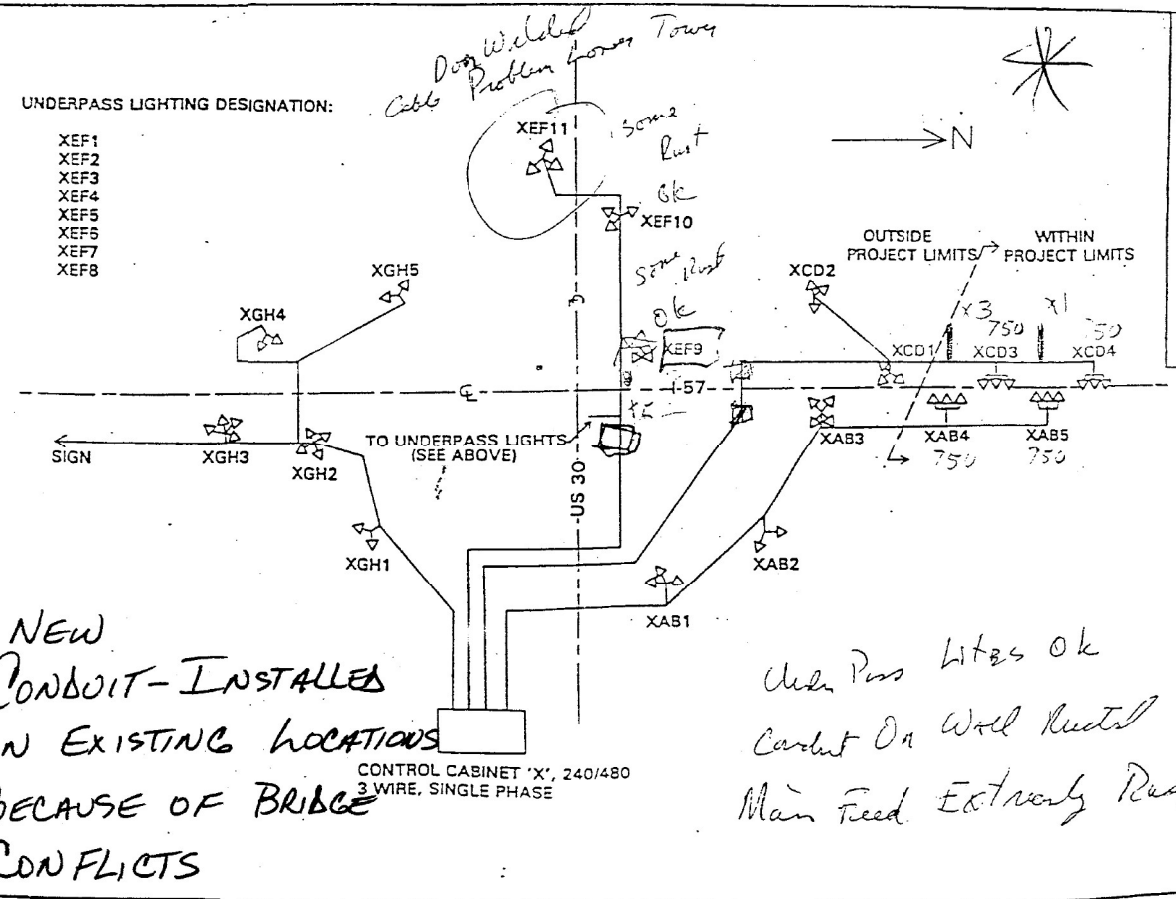 Door Welded
Cable Problem Lower Tower
UNDERPASS LIGHTING DESIGNATION:
XEF1
XEF2
XEF3
XEF4
XEF5
XEF6
XEF7
XEF8
XEF11
some
Rust
Ok
XEF10
N
OUTSIDE
PROJECT LIMITS
WITHIN
PROJECT LIMITS
XGH5
XGH4
some Rust
Ok
XEF9
XCD2
X3
750
X1
750
XCD1
XCD3
XCD4
I-57
℄
SIGN
XGH3
XGH2
TO UNDERPASS LIGHTS
(SEE ABOVE)
XAB3
XAB4
XAB5
750
750
US 30
XGH1
XAB2
XAB1
NEW
CONDUIT-INSTALLED
N EXISTING LOCATIONS
BECAUSE OF BRIDGE
CONFLICTS
CONTROL CABINET 'X', 240/480
3 WIRE, SINGLE PHASE
Under Pass Lites Ok
Conduit On Wall Rusted
Main Feed Extremely